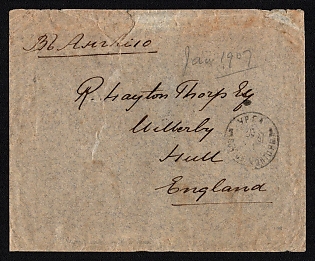 Въ Англію
Jan 1907
R. Hayton Thorp Esq
Willerby
Hull
England
УРГА